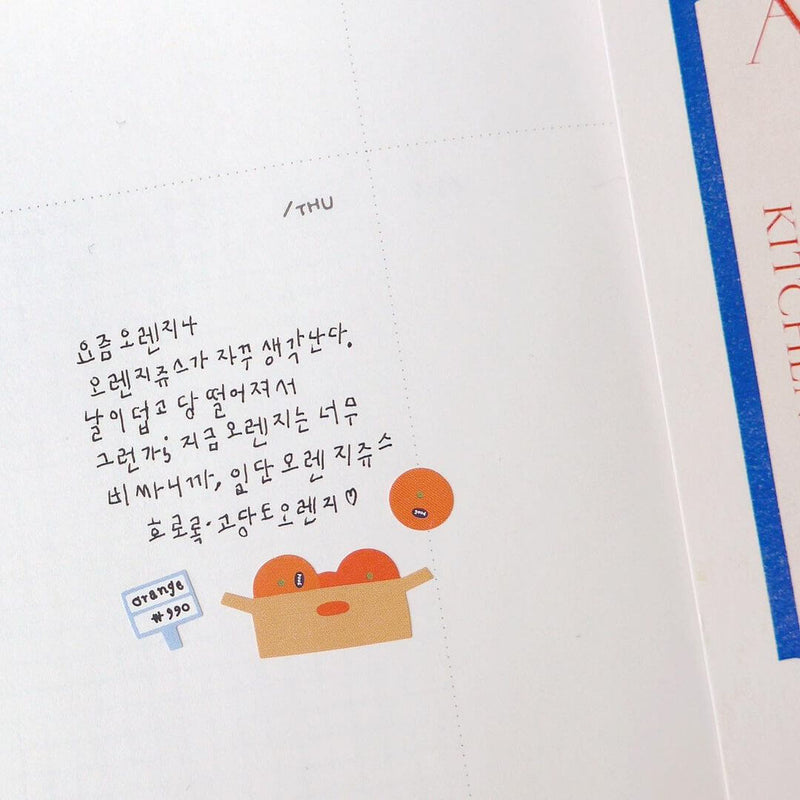 /THU
요즘 오렌지나
오렌지쥬스가 자꾸 생각난다.
날이 덥고 당 떨어져서
그런가; 지금 오렌지는 너무
비싸니까, 일단 오렌지쥬스
호로록. 고당도오렌지♡
good
good
orange
₩990
A
KITCHEN